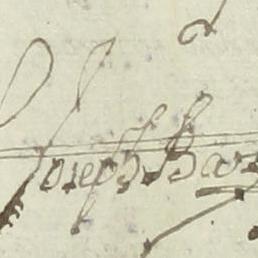 Joseph Bar